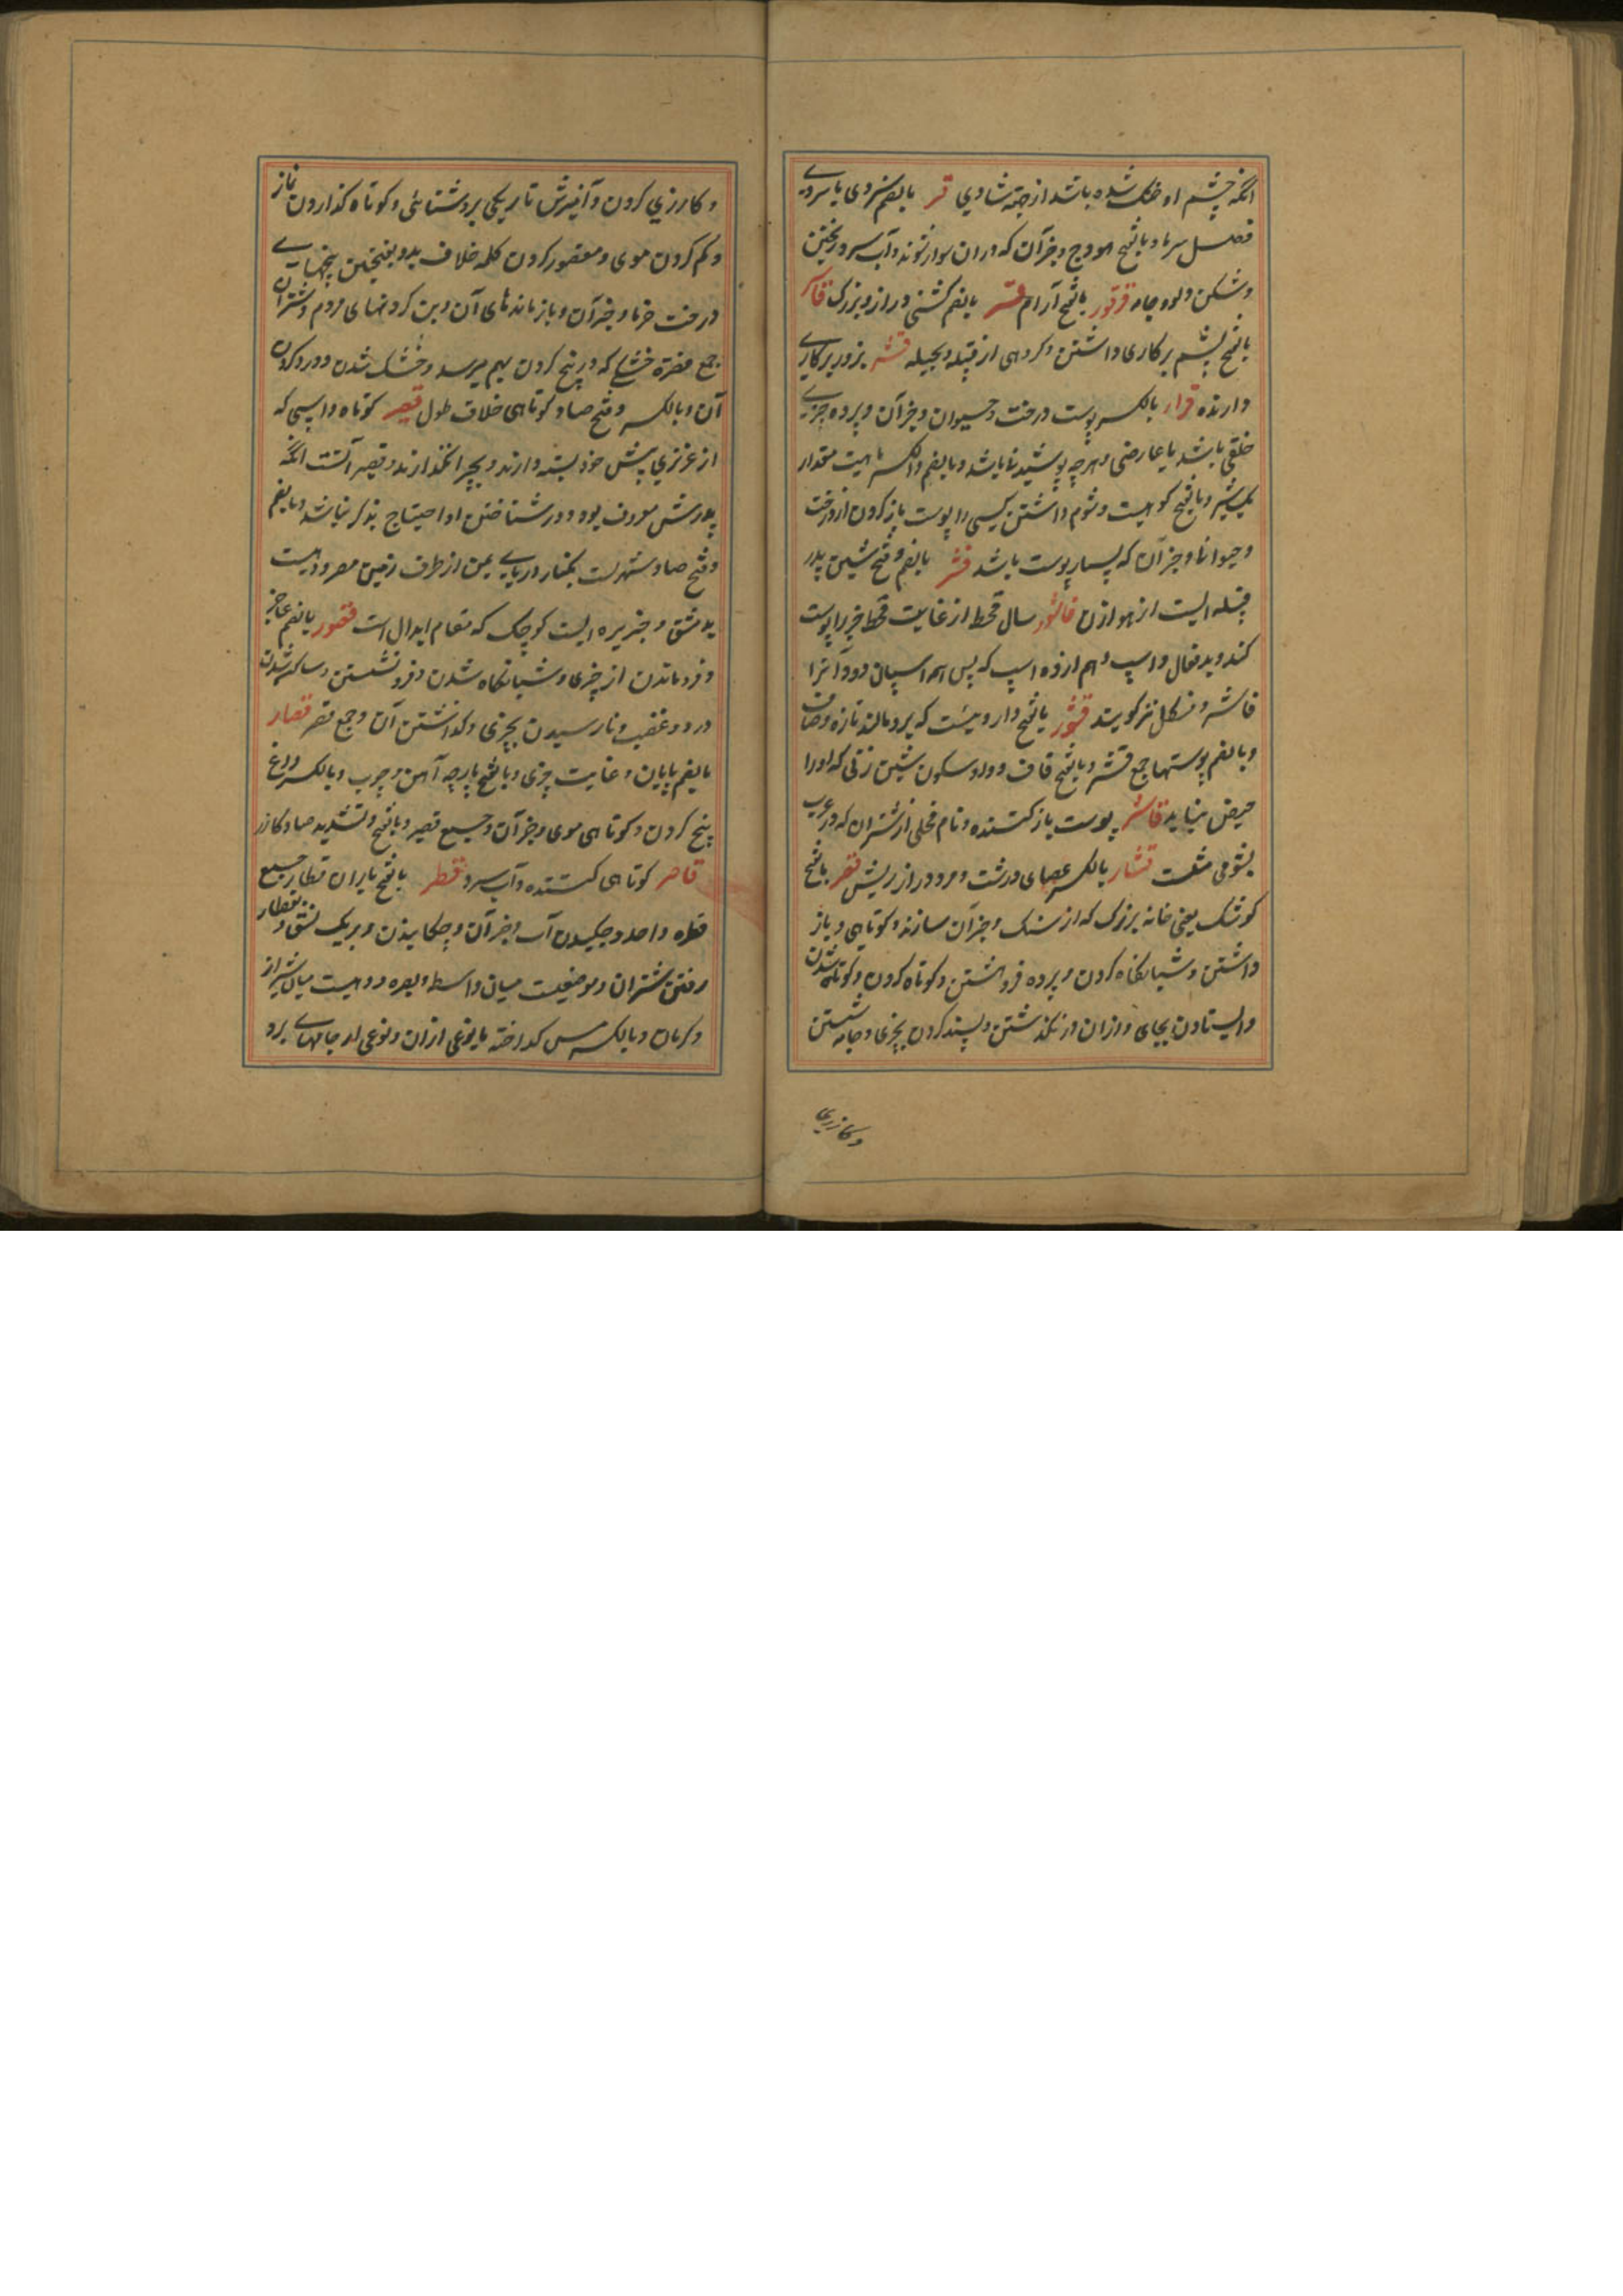 آنکه چشم او خنک شده باشد از جهة شادي قر بالضم سردی یا سردی
فصل سرما و بالفتح هودج و جز آن که در ان سوار شوند و آب سرد ریختن
و شکن دلو و جامه قرقور بالفتح آرام بالضم کشتی دراز و بزرگ
بالفتح بستم بر کاری داشتن و گروهی از قبیله بجیله بزور بر کاری
دارنده بالکسر پوست درخت و حیوان و جز آن و پرده چیزی
خلقی باشد یا عارضی و هرچه پوشیدنی باشد و بالضم و الکسر ماهیت مقدار
یک شبر و بالفتح کوهیست و شوم داشتن کسی را و پوست باز کردن از درخت
و حیوان و جز آن که بسیار پوست باشد قشر بالضم و فتح شین پدر
قبیله ایست از هوازن قاشور سال قحط از غایت قحط چیز را پوست
کند و بدفال و اسپ دهم از ده اسپ که پس همه اسپان دود و آنرا
فاشر و فسکل نیز گویند قشور بالفتح داروییست که بر رو مالند تا تازه و صاف
و بالضم پوستها جمع قشر و بالفتح قاف و واو و سکون شین زنی که او را
حیض نیاید قاشر پوست باز کننده و نام فحلی از شتران که در عرب
بشومی مثلست قشار بالکسر عصای درشت و مرد دراز ریش قصر بالفتح
کوشک یعنی خانه بزرگ که از سنگ و جز آن سازند و کوتاهی و باز
داشتن و شبانگاه کردن و پرده فروهشتن و کوتاه کردن و کوتاه شدن
و ایستادن بجای و از ان در نگذشتن و پسند کردن بچیزی و جامه شستن
و کازری
و کازری کردن و آمیزش تاریکی بروشنائی و کوتاه گذاردن نماز
و کم کردن موی و مقصور کردن کلمه خلاف مد و بفتحتین بیخهای
درخت خرما و جز آن و باز مانده‌های آن و بن گردنهای مردم و شتران
جمع قصره خشکی که در بیخ گردن بهم میرسد و خشک شدن و درد گردن
آن و بالکسر و فتح صاد کوتاهی خلاف طول قصیر کوتاه و اسپی که
از عزیزی پیش خود بسته دارند و بچرا نگذارند و قصیر النسب آنکه
پدرش معروف بود و در شناختن او احتیاج بذکر نباشد و بالضم
و فتح صاد شهریست بکنار دریای یمن از طرف زمین مصر و دهیست
بدمشق و جزیره ایست کوچک که مقام ابدال است قصور بالضم عاجز
و فرو ماندن از چیزی و شبانگاه شدن و فرو نشستن و ساکن شدن
درد و غضب و نا رسیدن بچیزی و گذاشتن آن و جمع قصر قصار
بالضم پایان و غایت چیزی و بالفتح پارچه آهن و چوب و بالکسر داغ
بیخ گردن و کوتاهی موی و جز آن و جمع قصیر و بالفتح و تشدید صاد کازر
قاصر کوتاهی کننده و آب سرد قطر بالفتح باران قطار جمع
قطره واحد و چکیدن آب و جز آن و چکانیدن و بریک نسق و بقطار
رفتن شتران و موضعیست میان واسط و بصره و دهیست میان شیراز
و کرمان و بالکسر مس گداخته یا نوعی از ان و نوعی از جامهای برد